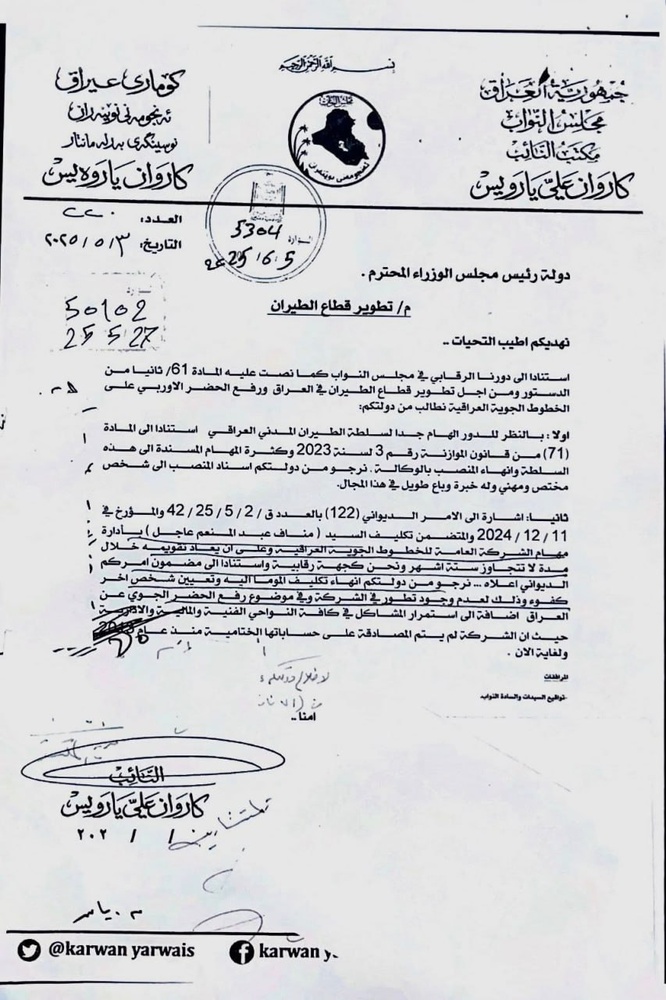 بسم الله الرحمن الرحيم
جمهورية العراق
مجلس النواب
مكتب النائب
كاروان علي يارويس
كۆماری عیراق
ئەنجومەنی نوێنەران
نوسینگەی پەرلەمانتار
كاروان یاروەیس
مجلس النواب
العدد:
التاريخ: ٢٠٢٥/٥/٣
الواردة
5304
2025/6/5
50102
25 5 27
دولة رئيس مجلس الوزراء المحترم .
م/ تطوير قطاع الطيران
نهديكم اطيب التحيات ..
استنادا الى دورنا الرقابي في مجلس النواب كما نصت عليه المادة 61/ ثانيا من
الدستور ومن اجل تطوير قطاع الطيران في العراق ورفع الحضر الاوربي على
الخطوط الجوية العراقية نطالب من دولتكم:
اولا : بالنظر للدور الهام جدا لسلطة الطيران المدني العراقي استنادا الى المادة
(71) من قانون الموازنة رقم 3 لسنة 2023 وكثرة المهام المسندة الى هذه
السلطة وانهاء المنصب بالوكالة . نرجو من دولتكم اسناد المنصب الى شخص
مختص ومهني وله خبرة وباع طويل في هذا المجال.
ثانيا: اشارة الى الامر الديواني (122) بالعدد ق / 2 / 5 / 25 / 42 والمؤرخ في
11 / 12 / 2024 والمتضمن تكليف السيد ( مناف عبد المنعم عاجل ) بأدارة
مهام الشركة العامة للخطوط الجوية العراقية وعلى ان يعاد تقويمه خلال
مدة لا تتجاوز ستة اشهر ونحن كجهة رقابية واستنادا الى مضمون امركم
الديواني اعلاه ... نرجو من دولتكم انهاء تكليف الموما اليه وتعيين شخص اخر
كفوء وذلك لعدم وجود تطور في الشركة وفي موضوع رفع الحضر الجوي عن
العراق اضافة الى استمرار المشاكل في كافة النواحي الفنية والمالية والادارية
حيث ان الشركة لم يتم المصادقة على حساباتها الختامية منذ عام
ولغاية الان .
المرفقات
-تواقيع السيدات والسادة النواب.
امنا..
النائب
كاروان علي يارويس
٢٠٢ / /
@karwan yarwais
karwan y